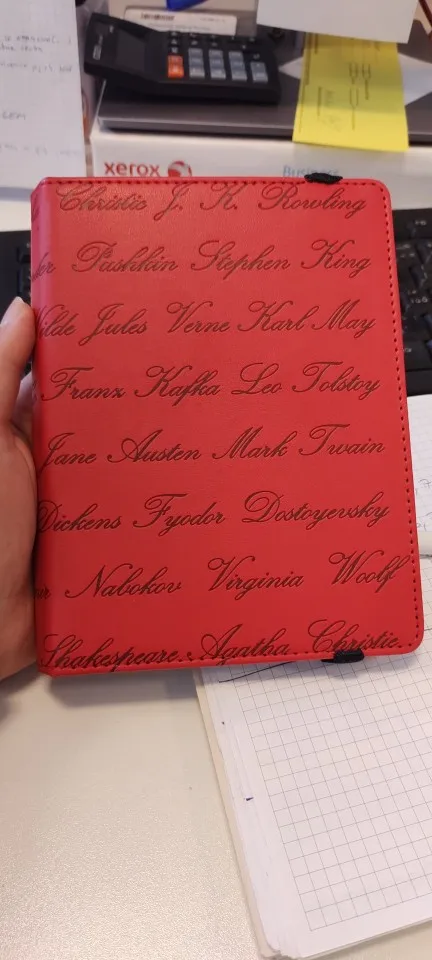 xerox
Business
Christie J. K. Rowling
er Pushkin Stephen King
ilde Jules Verne Karl May
Franz Kafka Leo Tolstoy
Jane Austen Mark Twain
Dickens Fyodor Dostoyevsky
ir Nabokov Virginia Woolf
Shakespeare Agatha Christie